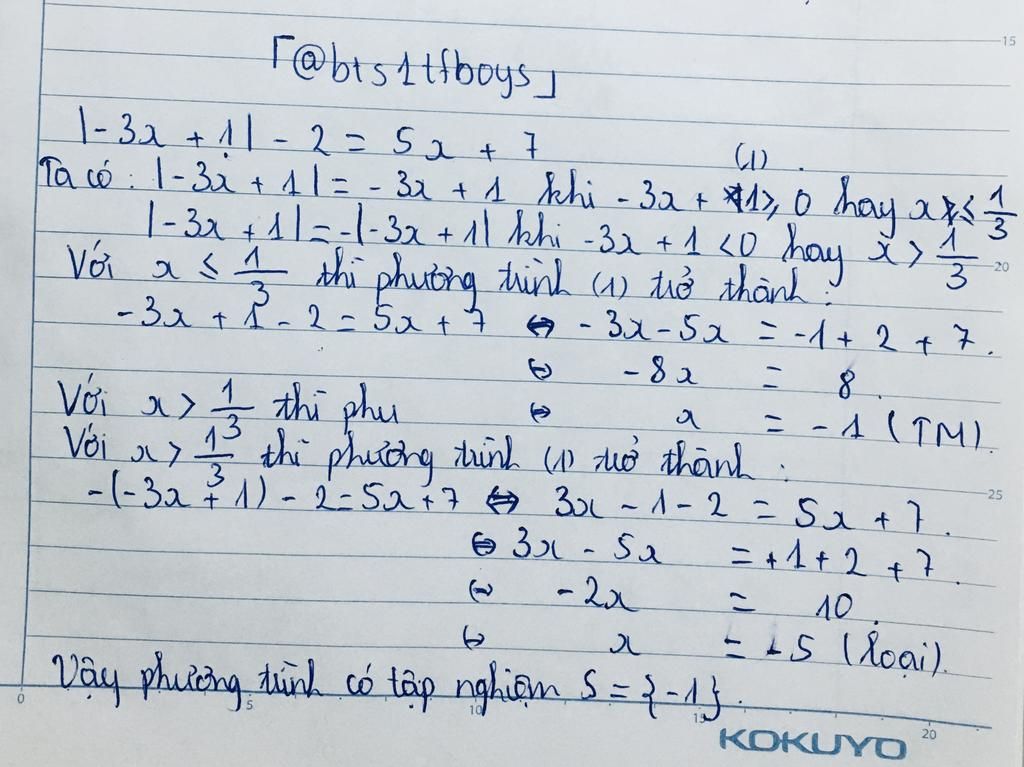 「@bts1tfboys」
|-3x + 1| - 2 = 5x + 7 (1).
Ta có: |-3x + 1| = -3x + 1 khi -3x + 1 ≥ 0 hay x ≤ 1/3
|-3x + 1| = -|-3x + 1| khi -3x + 1 < 0 hay x > 1/3
Với x ≤ 1/3 thì phương trình (1) trở thành:
-3x + 1 - 2 = 5x + 7 ⇔ -3x - 5x = -1 + 2 + 7.
⇔ -8x = 8.
Với x > 1/3 thì phu ⇔ x = -1 (TM).
Với x > 1/3 thì phương trình (1) trở thành:
-(-3x + 1) - 2 = 5x + 7 ⇔ 3x - 1 - 2 = 5x + 7.
⇔ 3x - 5x = +1 + 2 + 7.
⇔ -2x = 10.
⇔ x = -5 (loại).
Vậy phương trình có tập nghiệm S = {-1}.
KOKUYO
15
20
25
0 5 10 15 20